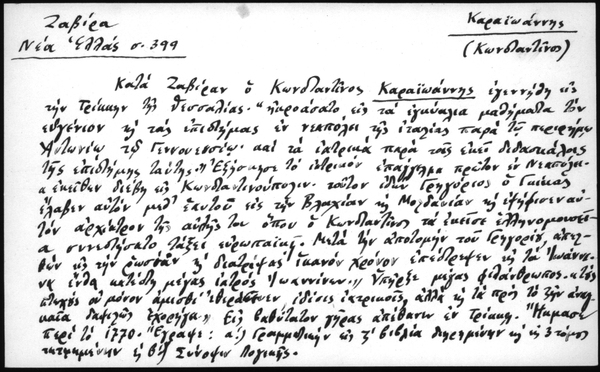 Ζαβίρα
Νέα Ἑλλάς σ. 399
Καραϊωάννης
(Κωνσταντῖνος)
Κατά Ζαβίραν ὁ Κωνσταντῖνος Καραϊωάννης ἐγεννήθη εἰς
τήν Τρίκκην τῆς Θεσσαλίας. "ἠκροάσατο εἰς τά ἐγκύκλια μαθήματα τόν
εὐγένιον κ τάς ἐπιστήμας ἐν νεαπόλει τῆς ἰταλίας παρά τῷ περιφήμῳ
Ἀντωνίῳ τῷ Γεννουενσίῳ. καί τά ἰατρικά παρά τοῖς ἐκεῖ διδασκάλοις
τῆς ἐπιστήμης ταύτης." Ἐξήσκησε τό ἰατρικόν ἐπάγγελμα πρῶτον ἐν Νεαπόλει.
"ἐκεῖθεν διέβη εἰς Κωνσταντινούπολιν. τοῦτον ἰδών Γρηγόριος ὁ Γκίκας
ἔλαβεν αὐτόν μεθ' ἑαυτοῦ εἰς τήν Βλαχίαν κ Μολδανίαν κ ἐψήφισεν αὐ-
τόν ἀρχίατρον τῆς αὐλῆς του ὅπου ὁ Κωνσταντῖνος τά ἐκεῖσε ἑλληνομουσεῖ-
α συνεστήσατο τάξει εὐρωπαίας. Μετά τήν ἀποτομήν τοῦ Γρηγορίου ἀπελ-
θών εἰς τήν ῥωσσίαν κ διατρίψας ἱκανόν χρόνον ἐπέστρεψεν εἰς τά Ἰωάννι-
να ἔνθα κατέστη μέγας ἰατρός Ἰωαννίνων." Ὑπῆρξε μέγας φιλάνθρωπος. "τούς
πτωχούς οὐ μόνον ἀμισθί ἐθεράπευεν, ἰδίοις ἰατρικοῖς, ἀλλά κ τά πρός τό ζῆν ἀναγ-
καῖα δαψιλῶς ἐχορήγει." Εἰς βαθύτατον γῆρας ἀπέθανεν ἐν Τρίκκῃ. Ἤκμασε
περί τό 1770. Ἔγραψε: α') Γραμματικήν εἰς βιβλία διῃρημένην κ εἰς 3 τόμους
τετμημένην κ β') Σύνοψιν Λογικῆς.